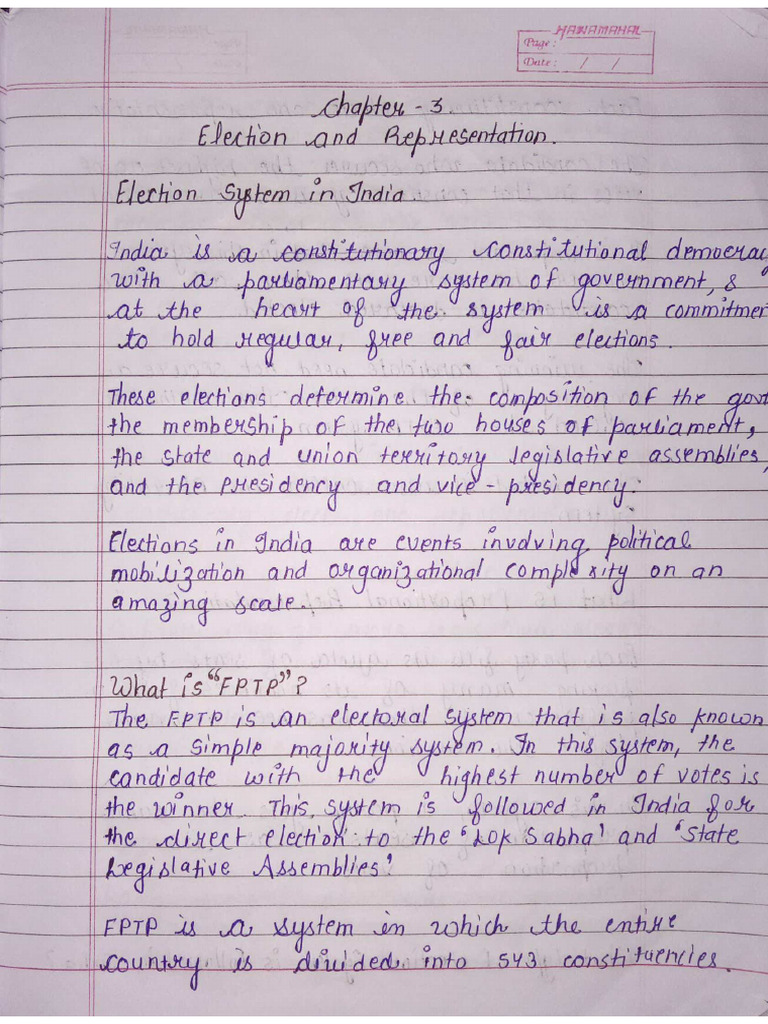 HAWAMAHAL
Page :
Date : / /
Chapter - 3.
Election and Representation.
Election System in India
India is a constitutionary constitutional democracy
with a parliamentary system of government, &
at the heart of the system is a commitmen
to hold regular, free and fair elections.
These elections determine the composition of the govt
the membership of the two houses of parliament,
the state and union territory legislative assemblies,
and the presidency and vice-presidency.
Elections in India are events involving political
mobilization and organizational complexity on an
amazing scale.
What is "FPTP"?
The FPTP is an electoral system that is also known
as a simple majority system. In this system, the
candidate with the highest number of votes is
the winner. This system is followed in India for
the direct election to the 'Lok Sabha' and 'State
Legislative Assemblies'
FPTP is a system in which the entire
country is divided into 543 constituencies.